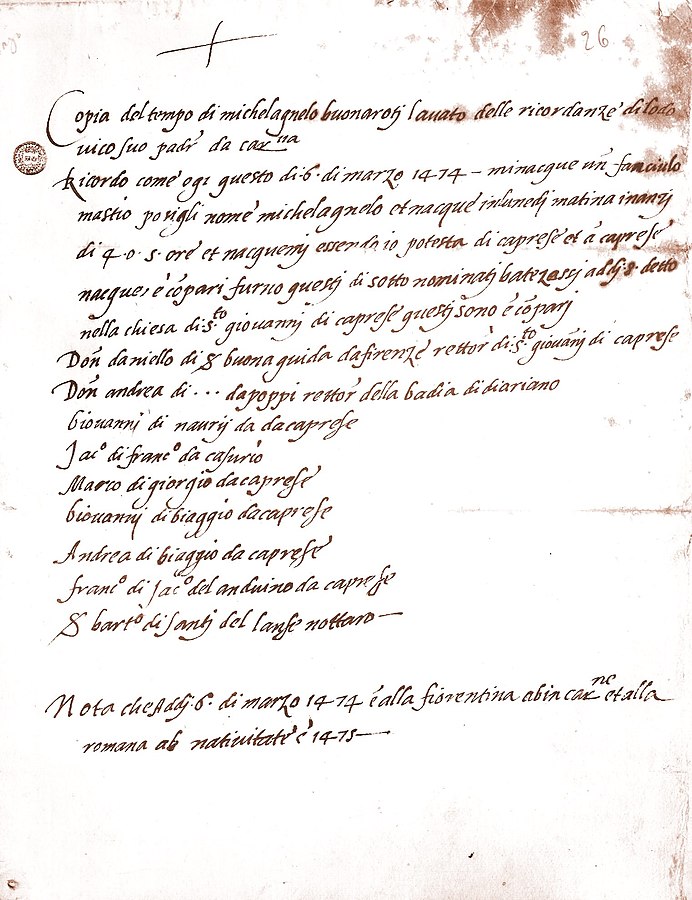 26
Copia del tempo di michelagnelo buonarotj lauato delle ricordanze di lodo
uico suo padr da car.na
Ricordo come ogi questo di .6. di marzo 1474 – mi nacque un fanciulo
mastio posigli nome michelagnelo et nacque in lunedj matina inanzj
di 4 o .5. ore et nacquemj essendo io potesta di caprese et a caprese
nacque, e cōpari furno questj di sotto nominatj batezossj addj .8. detto
nella chiesa di S.to giouannj di caprese questj sono e cōparj
Don daniello di S buonaguida da firenze rettor di S.to giouānj di caprese
Don andrea di ... da poppi rettor della badia di diariano
Giouannj di naurij da da caprese
Jac.o di franc.o da casurio
Marco di giorgio da caprese
Giouannj di biaggio da caprese
Andrea di biaggio da caprese
franc.o di Jac.o del anduino da caprese
S bart.o di santj del lanse nottaro –
Nota che Addj .6. di marzo 1474 è alla fiorentina ab incar.ne et alla
romana ab natiuitate è 1475 –